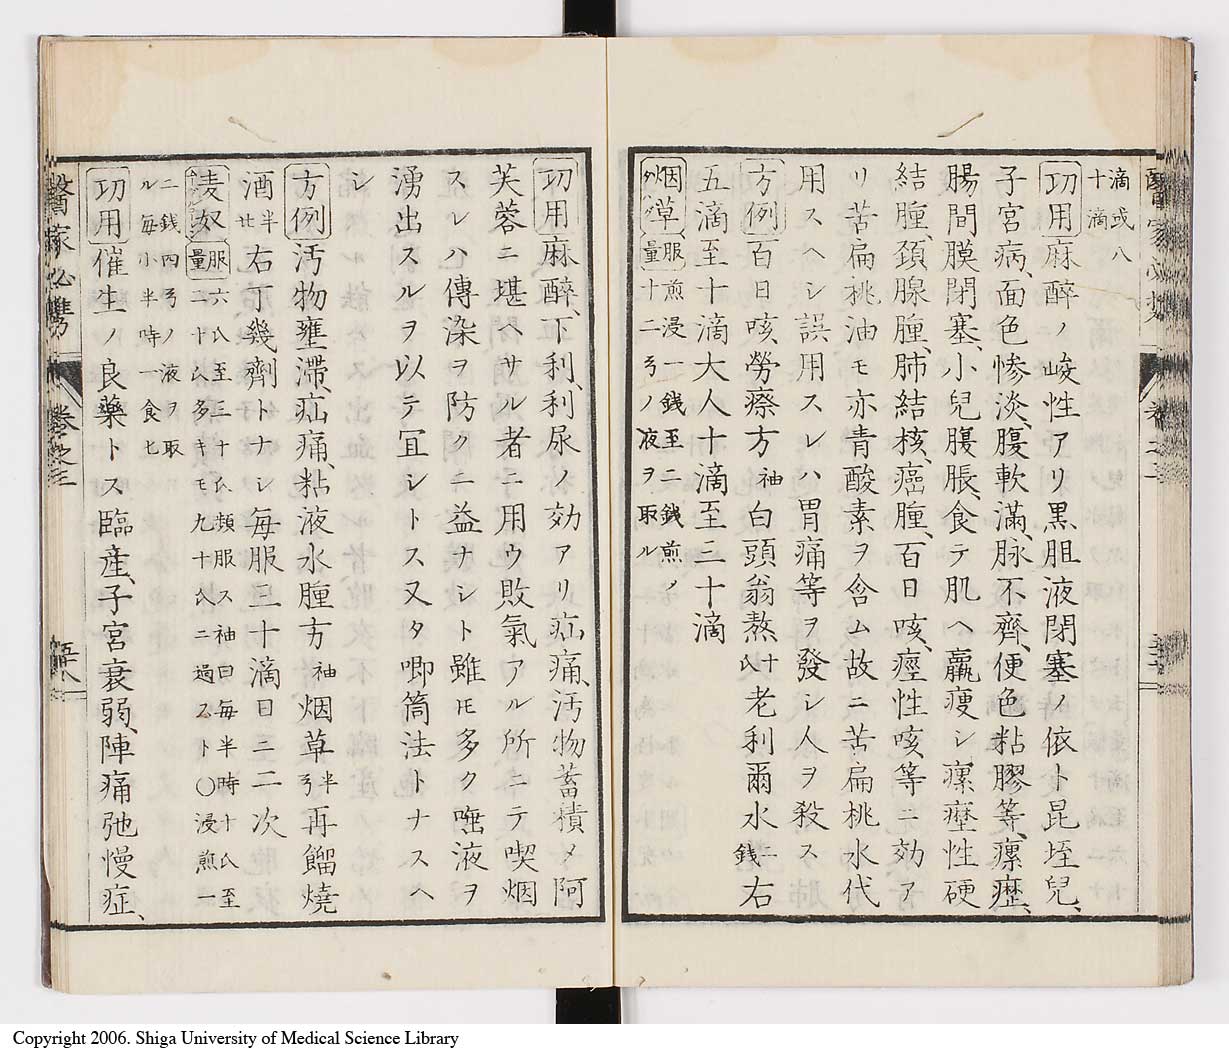 滴或八
十滴
功用麻酔ノ峻性アリ黒胆液閉塞ノ依ト昆垤兒、
子宮病、面色惨淡、腹軟満、脉不齊、便色粘膠等、瘰癧、
腸間膜閉塞、小兒腹脹、食テ肌ヘ羸痩シ瘰癧性硬
結腫、頚腺腫、肺結核、癌腫、百日咳、痙性咳等ニ効ア
リ苦扁桃油モ亦青酸素ヲ含ム故ニ苦扁桃水代
用スヘシ誤用スレハ胃痛等ヲ發シ人ヲ殺ス
方例百日咳、勞瘵方袖白頭翁熬十氏老利爾水二銭右
五滴至十滴大人十滴至三十滴
烟草服量煎浸一銭至二銭煎ノ
外十二ヲノ液ヲ取ル
功用麻酔、下利、利尿ノ効アリ疝痛、汚物蓄積メ阿
芙蓉ニ堪ヘサル者ニ用ウ敗氣アル所ニテ喫烟
スレハ傳染ヲ防クニ益ナシト雖モ多ク唾液ヲ
湧出スルヲ以テ冝シトス又タ喞筒法トナスヘ
シ
方例汚物壅滞、疝痛、粘液水腫方袖烟草半再餾焼
酒半右丁幾劑トナシ毎服三十滴日三二次
麦奴服量六八至三十氏類服ス袖曰毎半時十氏至
二十氏多キモ九十氏ニ過スト〇浸煎一
二銭四ヲノ液ヲ取
ル毎小半時一食匕
功用催生ノ良藥トス臨産、子宮衰弱、陣痛弛慢症、
醫家必携 巻之三